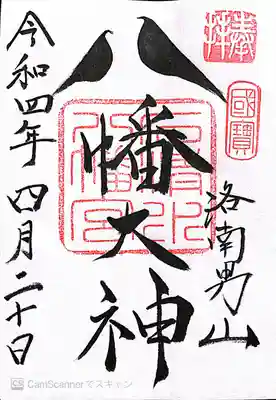 奉拝
國寶
洛南男山
八幡大神
石清水八幡宮
令和四年 四月二十日
CS CamScannerでスキャン